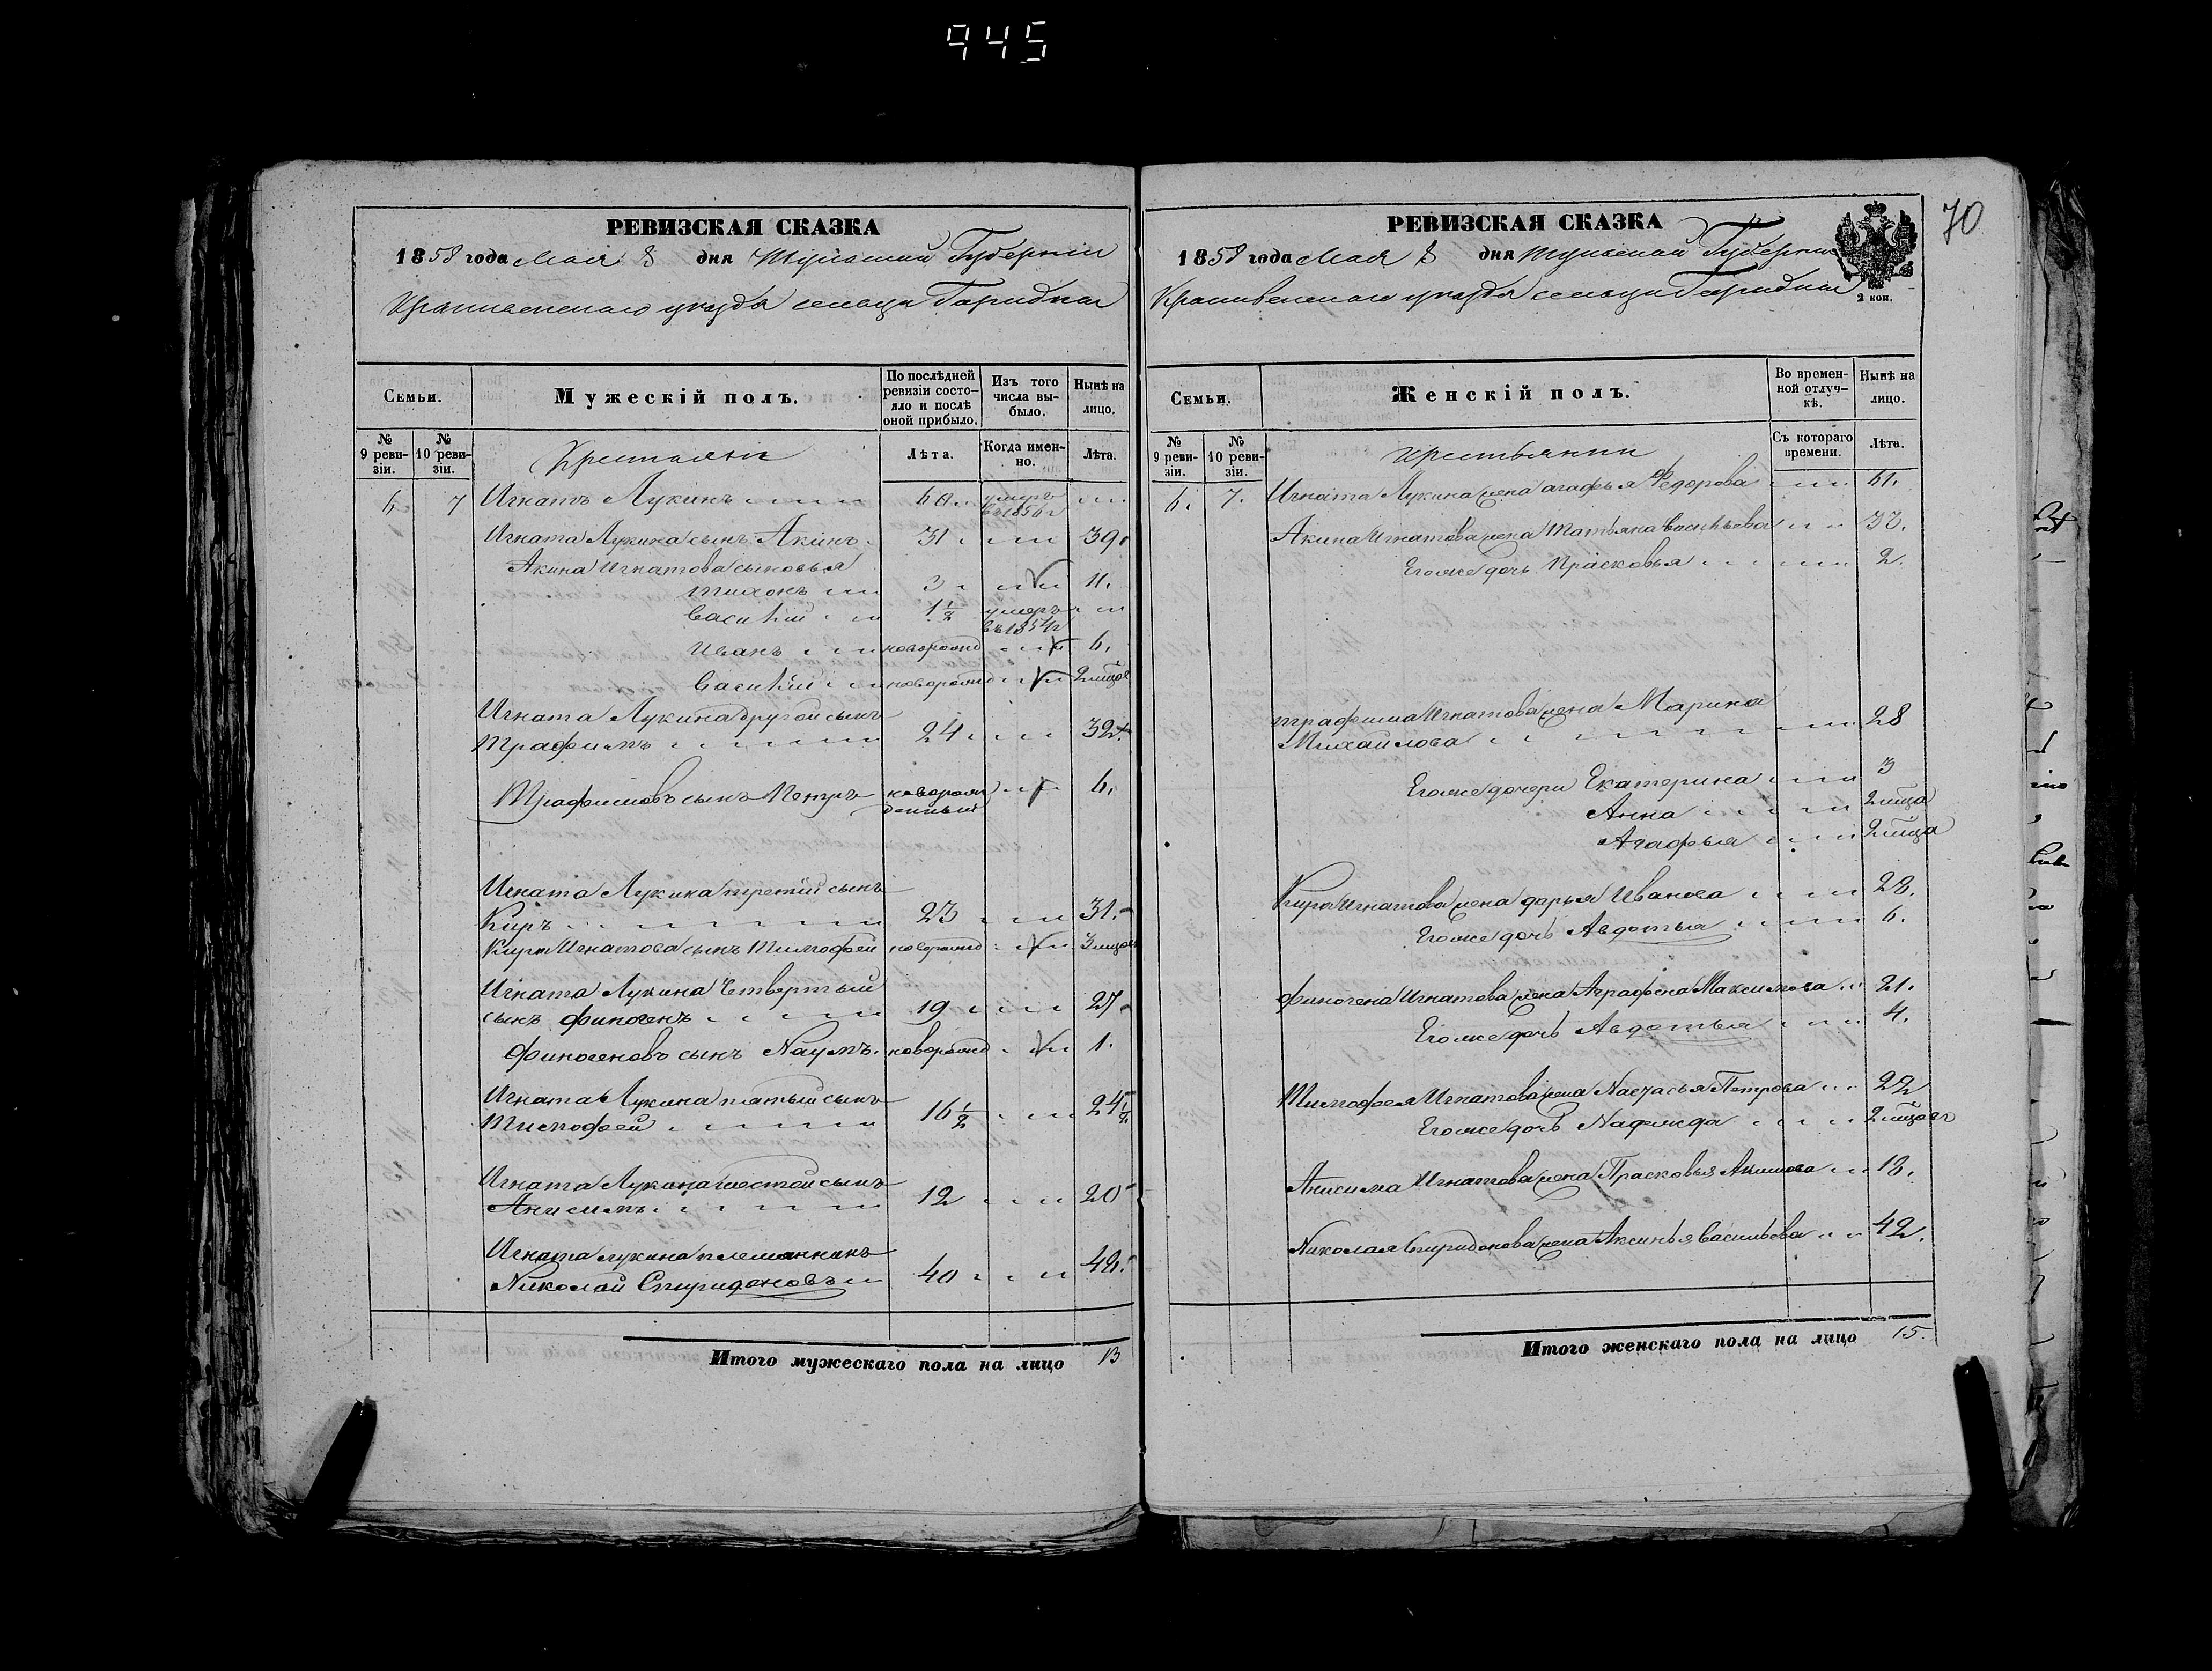 945
РЕВИЗСКАЯ СКАЗКА
1858 года Мая 8 дня Тульской Губернии
Крапивенскаго уезда сельца
Семьи.
Мужескій полъ.
По послѣдней ревизіи состо-
яло и послѣ оной прибыло.
Изъ того числа вы-
было.
Нынѣ на лицо.
№ 9 реви-
зіи.
№ 10 реви-
зіи.
Крестьяни
Лѣта.
Когда имен-
но.
Лѣта.
6. 7 Игнатъ Лукинъ 60 умеръ въ 1856 г
Игната Лукина сынъ Акинъ 31 39.
Акина Игнатова сыновья
Тихонъ 3 11.
Василий 1 1/2 умеръ въ 1854 г
Иванъ новорожд 6.
Василий новорожд
Игната Лукина другой сынъ
Трафимъ 24 32.
Трафимовъ сынъ Петръ новорож
денный 6.
Игната Лукина третий сынъ
Киръ 23 31.
Кира Игнатова сынъ Тимофей новорожд
Игната Лукина Четвертый
сынъ Финогенъ 19 27
Финогеновъ сынъ Наумъ. новорожд 1.
Игната Лукина пятый сынъ
Тимофей 16 1/2 24 1/2
Игната Лукина шестой сынъ
Анисимъ 12 20
Игната Лукина племянникъ
Николай Спиридоновъ 40 48.
Итого мужескаго пола на лицо 13
70
РЕВИЗСКАЯ СКАЗКА
1858 года Мая 8 дня Тульской Губернии
Крапивенскаго уезда сельца
2 коп.
Семьи.
Женскій полъ.
Во времен-
ной отлуч-
кѣ.
Нынѣ на лицо.
№ 9 реви-
зіи.
№ 10 реви-
зіи.
Крестьянки
Съ котораго времени.
Лѣта.
6. 7. Игната Лукина жена агафья Федорова 61.
Акина Игнатова жена Татьяна Васильева 33.
Егоже дочь Прасковья 2.
Трафима Игнатова жена Марина
Михайлова 28
Егоже дочери Екатерина 3
Анна
Агафья
Кира Игнатова жена дарья Иванова 28.
Егоже дочь Авдотья 6.
Финогена Игнатова жена Аграфена Максимова 21.
Егоже дочь Авдотья 4.
Тимофея Игнатова жена Настасья Петрова 22
Егоже дочь Надежда
Анисима Игнатова жена Прасковья 18.
Николая Спиридонова жена Аксинья Васильева 42.
Итого женскаго пола на лицо 15.